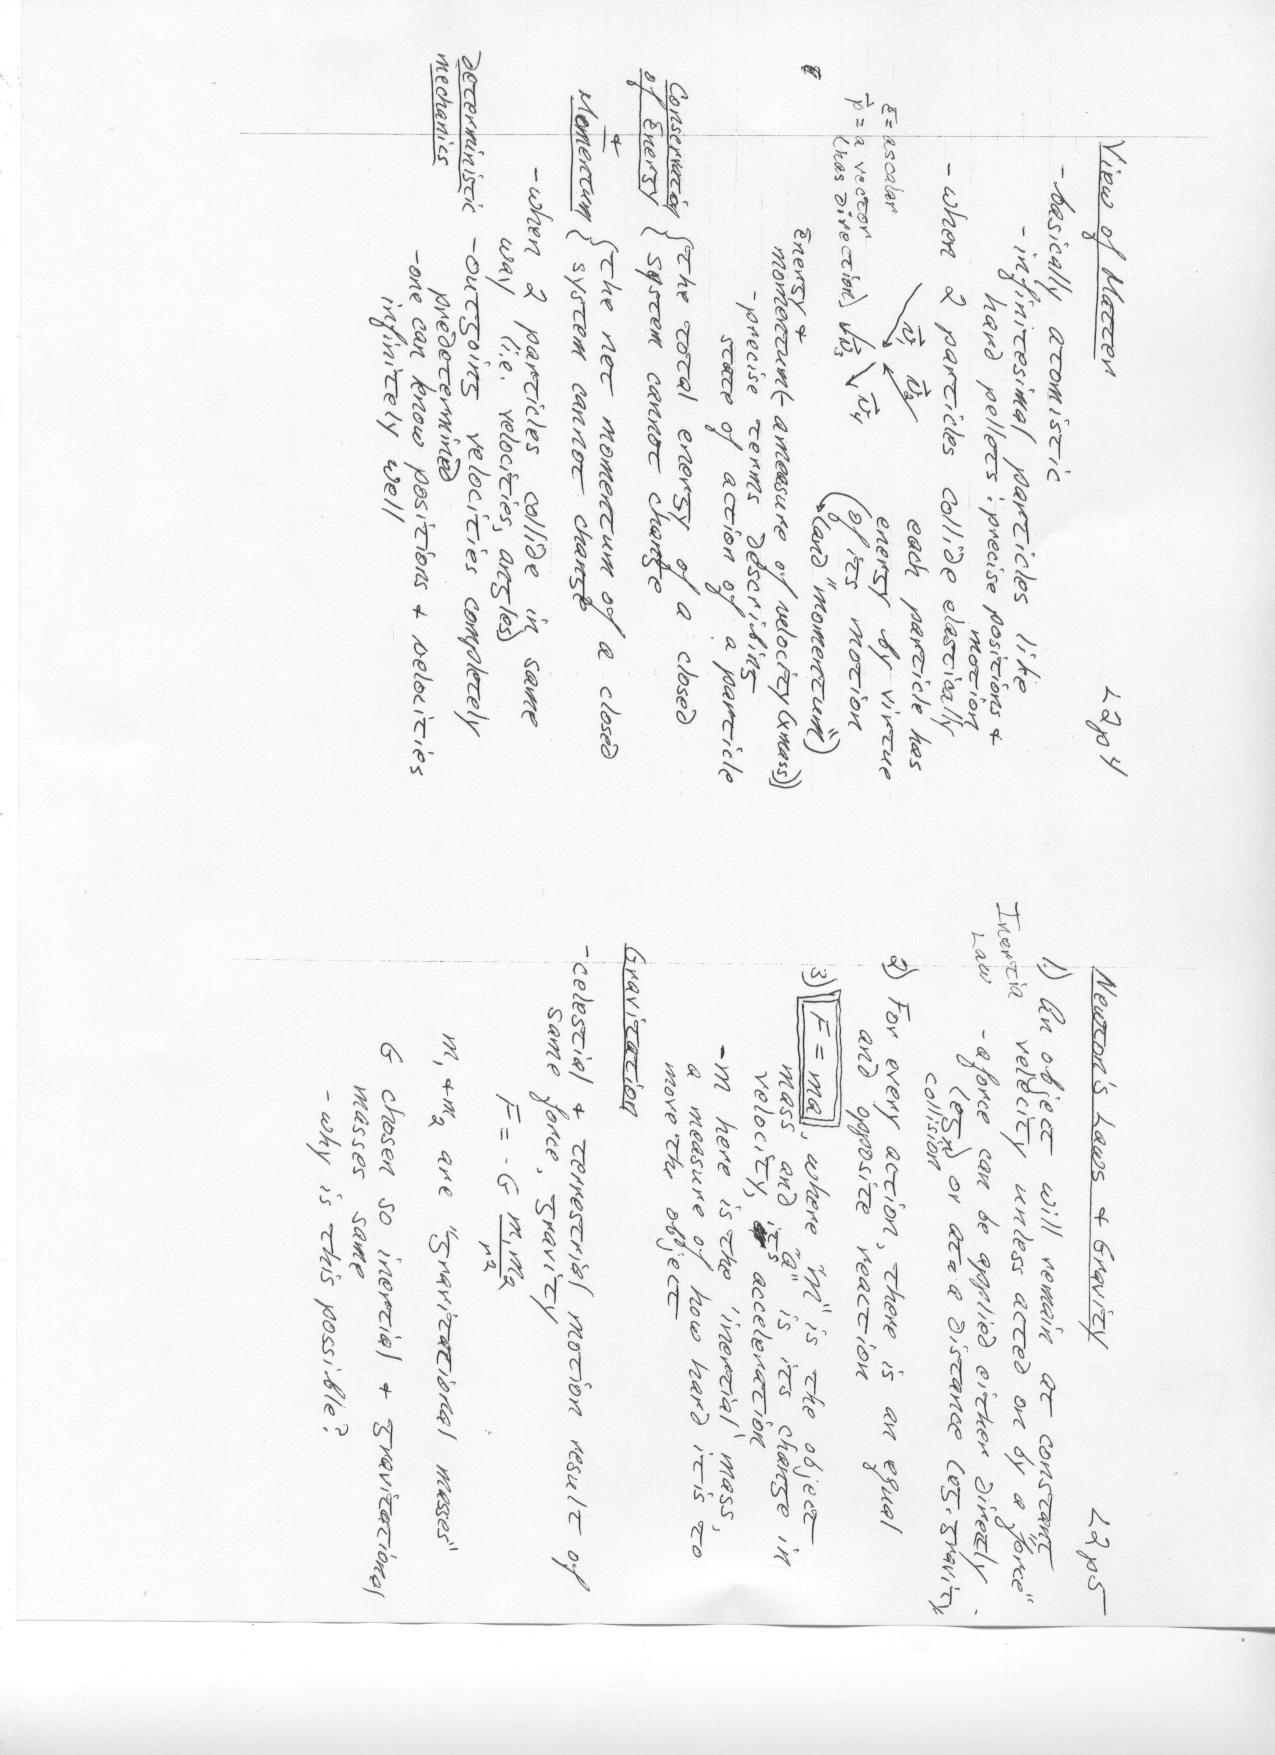 View of Matter L2p4
- basically atomistic
- infinitesimal particles like
hard pellets: precise positions +
motion
- when 2 particles collide elastically
E = a scalar
p⃗ = a vector
(has direction)
v⃗₁ v⃗₂
v⃗₃ v⃗₄
each particle has
energy by virtue
of its motion
(and "momentum")
Energy +
momentum (- a measure of velocity (x mass))
- precise terms describing
state of action of a particle
Conservation
of Energy
{ the total energy of a closed
system cannot change
+
Momentum
{ the net momentum of a closed
system cannot change
- when 2 particles collide in same
way (i.e. velocities, angles)
Deterministic
mechanics
- outgoing velocities completely
predetermined
- one can know positions + velocities
infinitely well
Newton's Laws + Gravity L2p5
1.) An object will remain at constant
Inertia
Law
velocity unless acted on by a "force"
- a force can be applied either directly
(eg. or at a distance (eg. gravity)
collision
2) For every action, there is an equal
and opposite reaction
3) F = ma, where "m" is the object
mass and "a" is its change in
velocity, its acceleration
- m here is the "inertial" mass,
a measure of how hard it is to
move the object
Gravitation
- celestial + terrestrial motion result of
same force, gravity
F = - G m₁m₂
r²
m₁ + m₂ are "gravitational masses"
G chosen so inertial + gravitational
masses same
- why is this possible?